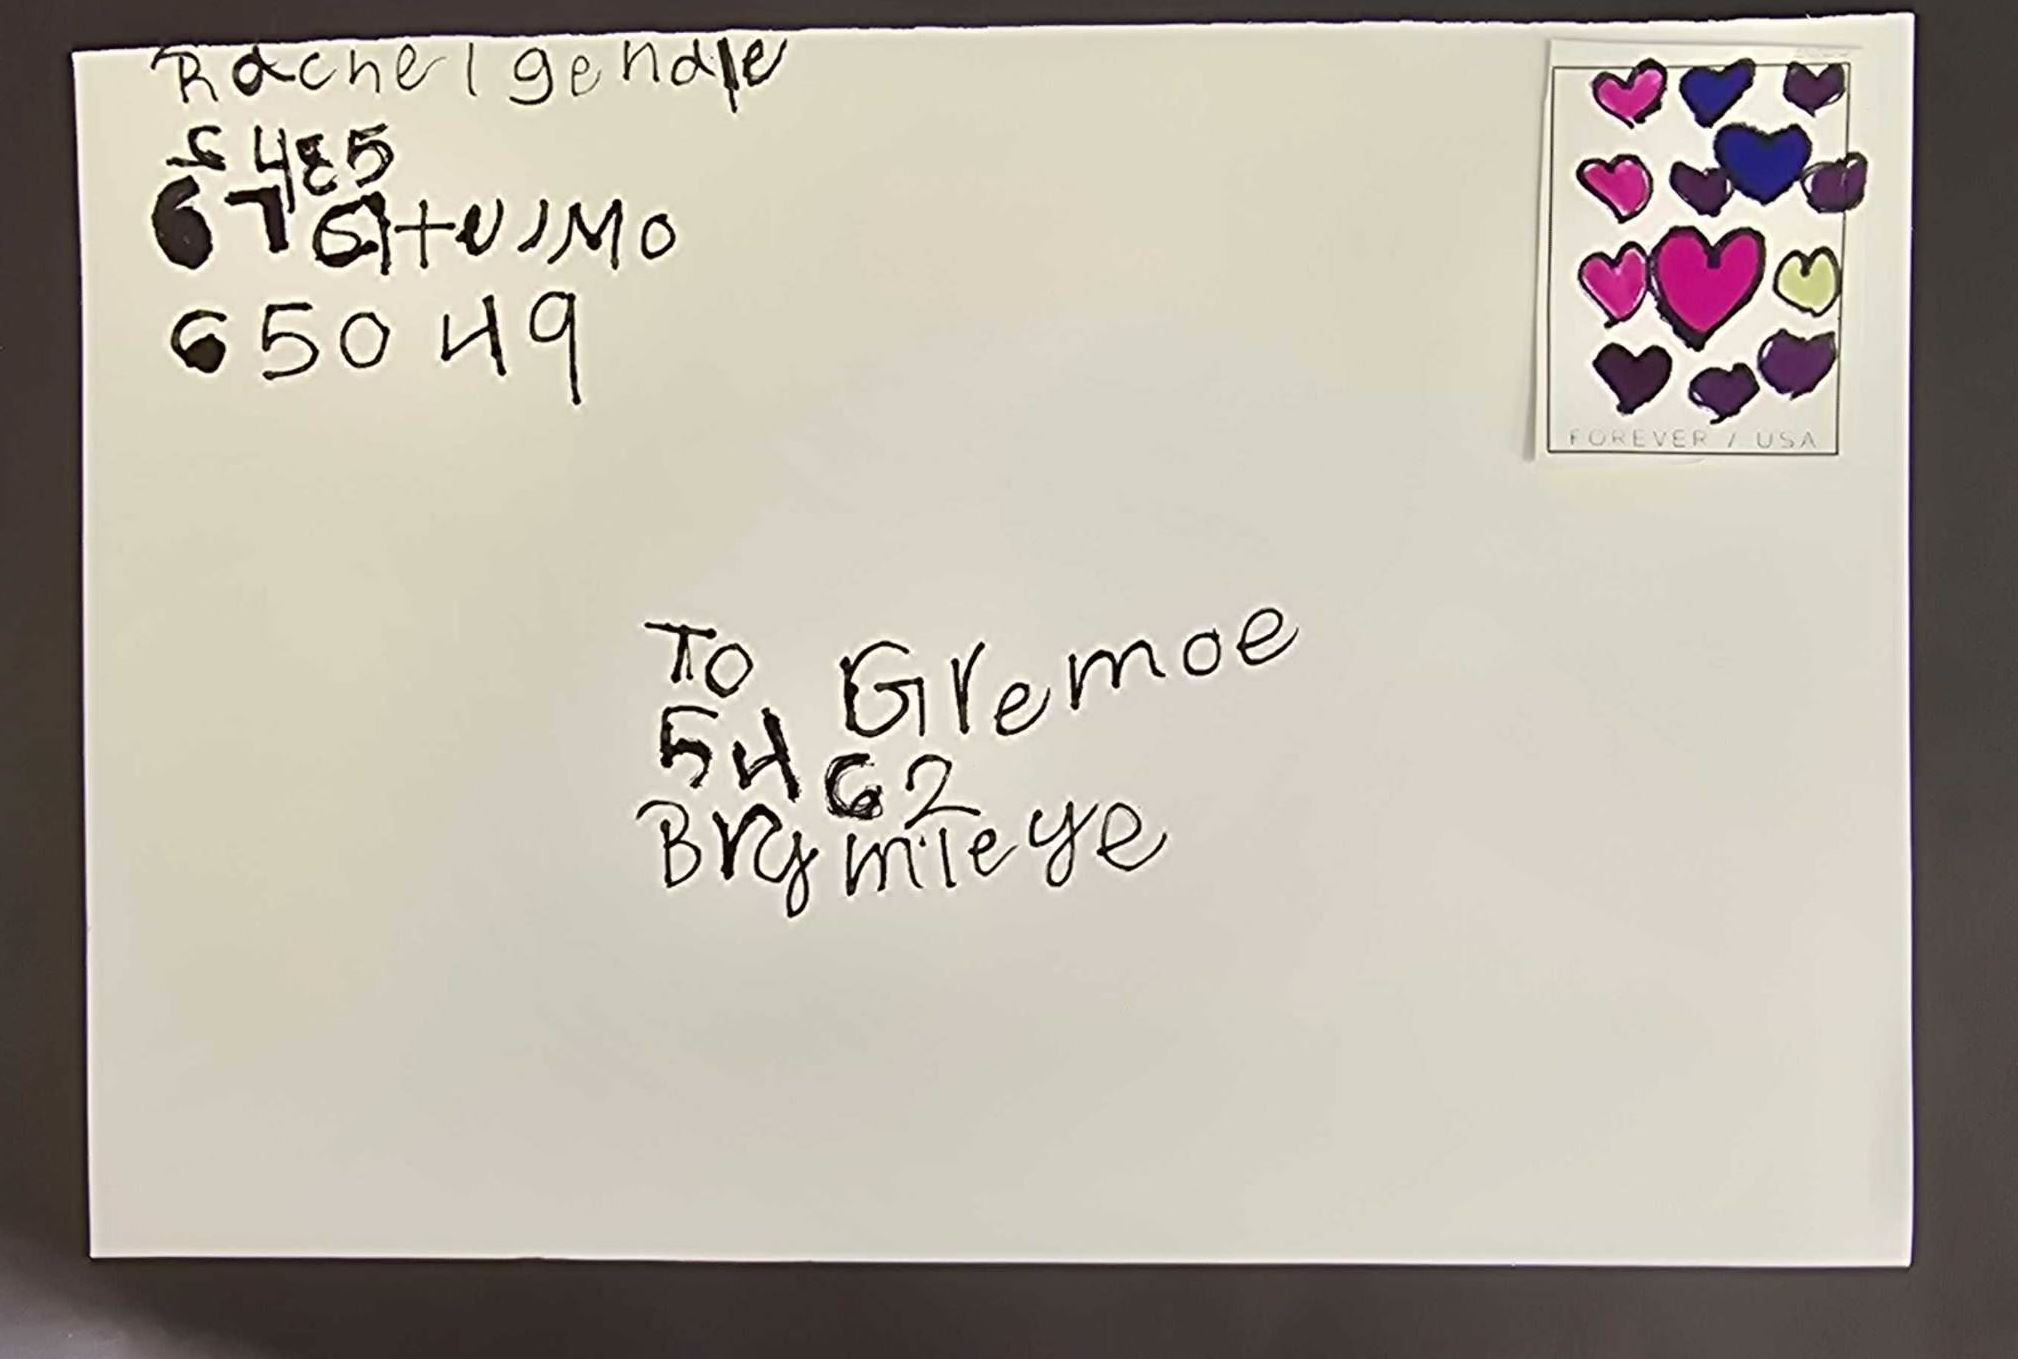 Rachel gendle
5485
MO
65049
FOREVER / USA
To Gremoe
5462
Brymileye